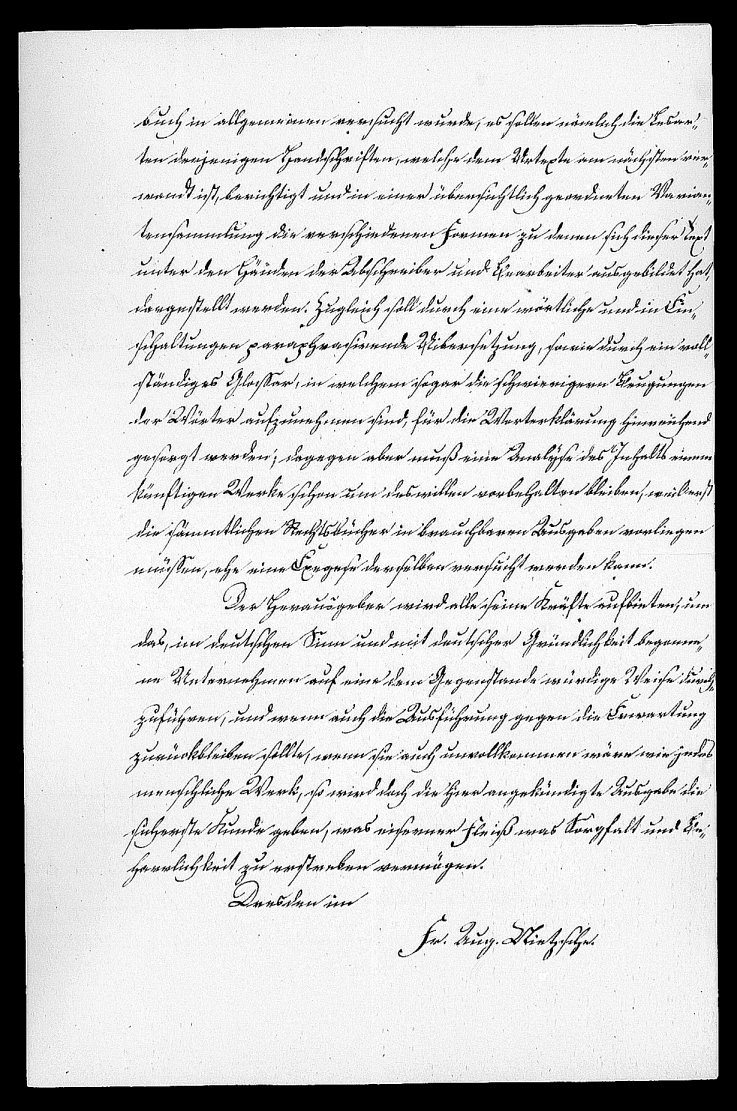 buch in allgemeinen versucht wurde, es sollen nämlich die Lesar-
ten derjenigen Handschriften, welche dem Urtexte am nächsten ver-
wandt ist, berichtigt und in einer übersichtlich geordneten Varian-
tensammlung die verschiedenen Formen zu denen sich dieser Text
unter den Händen der Abschreiber und Bearbeiter ausgebildet hat,
dargestellt werden. Zugleich soll durch eine wörtliche und in Ein-
schaltungen paraphrasirende Uibersetzung, sowie durch ein voll-
ständiges Glossar, in welchem sogar die schwierigern Beugungen
der Wörter aufzunehmen sind, für die Worterklärung hinreichend
gesorgt werden; dagegen aber muß eine Analyse des Inhalts einem
künftigen Werke schon um deswillen vorbehalten bleiben, weil erst
die sämmtlichen Rechtsbücher in brauchbaren Ausgaben vorliegen
müssen, ehe eine Exegese derselben versucht werden kann.
Der Herausgeber wird alle seine Kräfte aufbieten, um
das, im deutschen Sinn und mit deutscher Gründlichkeit begonne-
ne Unternehmen auf eine dem Gegenstande würdige Weise durch-
zuführen, und wenn auch die Ausführung gegen die Erwartung
zurückbleiben sollte, wenn sie auch unvollkommen wäre wie jedes
menschliche Werk, so wird doch die hier angekündigte Ausgabe die
sicherste Kunde geben, was eiserner Fleiß was Sorgfalt und Be-
harrlichkeit zu erstreben vermögen.
Dresden im
Fr. Aug. Nietzsche.